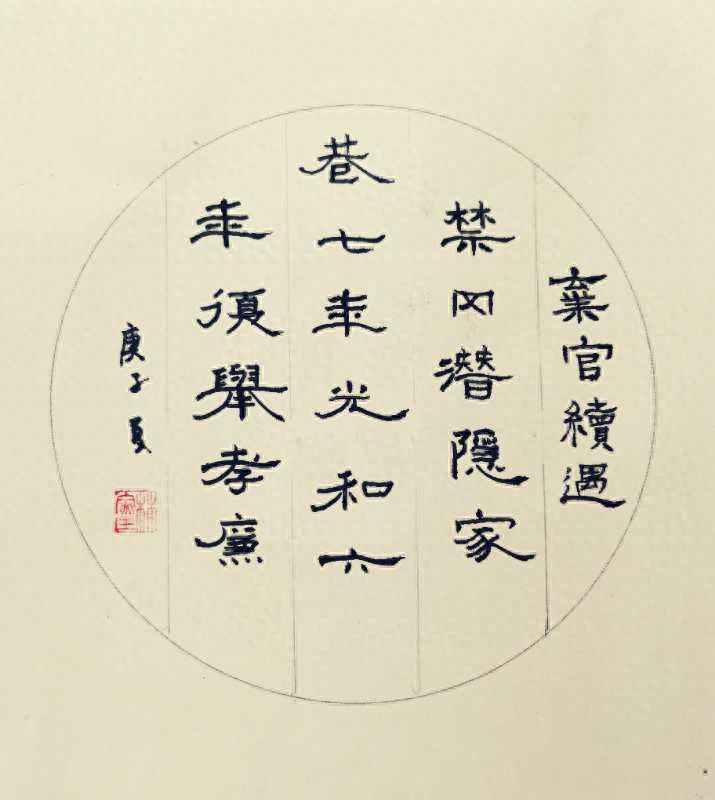 棄官續遇
禁冈潛隱家
巷七年光和六
年復舉孝廉
庚子夏